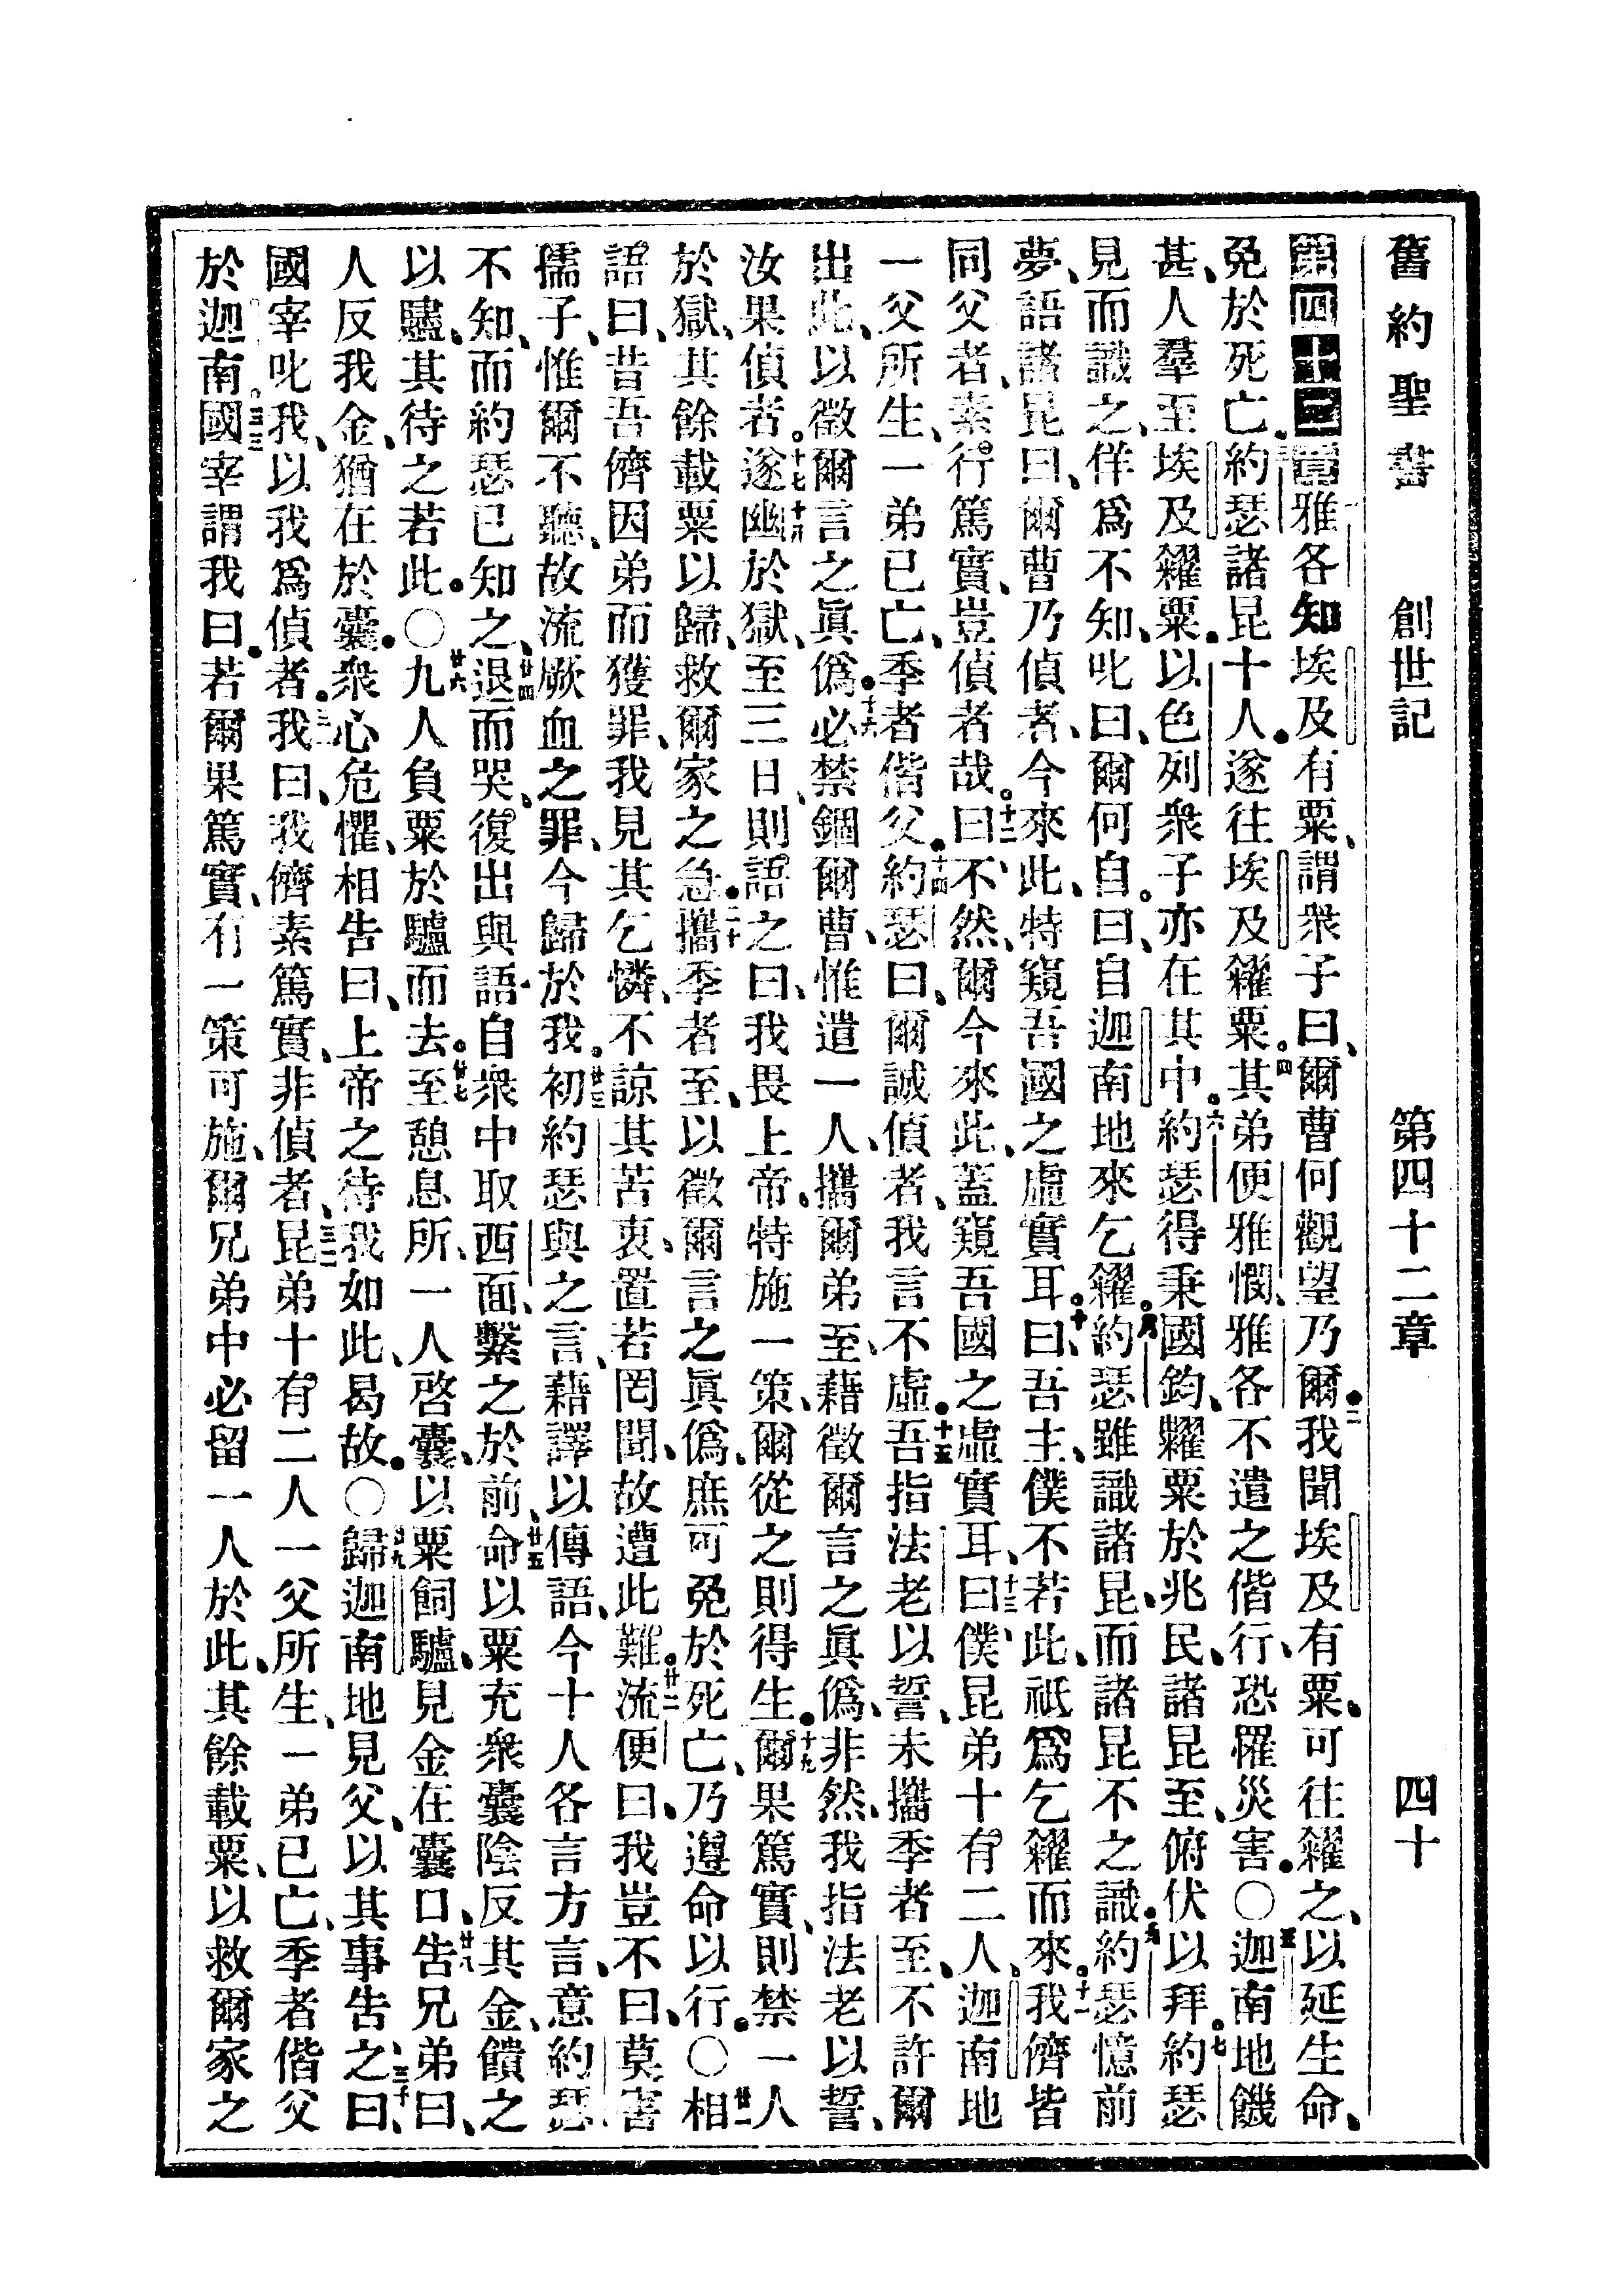 舊約聖書 創世記 第四十二章 四十
第四十二章 一雅各知埃及有粟、謂衆子曰、爾曹何觀望乃爾。二我聞埃及有粟、可往糴之、以延生命、
免於死亡、三約瑟諸昆十人。遂往埃及糴粟。四其弟便雅憫、雅各不遣之偕行、恐罹災害。〇五迦南地饑
甚、人羣至埃及糴粟。以色列衆子亦在其中。六約瑟得秉國鈞、糶粟於兆民、諸昆至、俯伏以拜。七約瑟
見而識之、佯爲不知、叱曰、爾何自。曰、自迦南地來乞糴。八約瑟雖識諸昆、而諸昆不之識。九約瑟憶前
夢、語諸昆曰、爾曹乃偵者、今來此、特窺吾國之虛實耳。十曰、吾主、僕不若此、祇爲乞糴而來。十一我儕皆
同父者、素行篤實、豈偵者哉。十二曰、不然、爾今來此、蓋窺吾國之虛實耳、十三曰、僕昆弟十有二人、迦南地
一父所生、一弟已亡、季者偕父。十四約瑟曰、爾誠偵者、我言不虛。十五吾指法老以誓、未攜季者至、不許爾
出此、以徵爾言之眞僞。十六必禁錮爾曹、惟遣一人、攜爾弟至、藉徵爾言之眞僞、非然、我指法老以誓、
汝果偵者。十七遂幽於獄、十八至三日、則語之曰、我畏上帝、特施一策、爾從之則得生。十九爾果篤實、則禁一人
於獄、其餘載粟以歸、救爾家之急。二十攜季者至、以徵爾言之眞僞、庶可免於死亡、乃遵命以行。〇廿一相
語曰、昔吾儕因弟而獲罪、我見其乞憐、不諒其苦衷、置若罔聞、故遭此難。廿二流便曰、我豈不曰、莫害
孺子、惟爾不聽、故流厥血之罪、今歸於我。廿三初約瑟與之言、藉譯以傳語、今十人各言方言、意約瑟
不知、而約瑟已知之、廿四退而哭、復出與語、自衆中取西面、繫之於前、廿五命以粟充衆囊、陰反其金、饋之
以贐、其待之若此。〇廿六九人負粟於驢而去。廿七至憩息所、一人啓囊、以粟飼驢、見金在囊口、廿八告兄弟曰、
人反我金、猶在於囊。衆心危懼、相告曰、上帝之待我如此、曷故。〇廿九歸迦南地見父、以其事告之、三十曰、
國宰叱我、以我爲偵者。三一我曰、我儕素篤實、非偵者、三二昆弟十有二人一父所生、一弟已亡、季者偕父
於迦南。三三國宰謂我曰。若爾果篤實、有一策可施、爾兄弟中必留一人於此、其餘載粟、以救爾家之